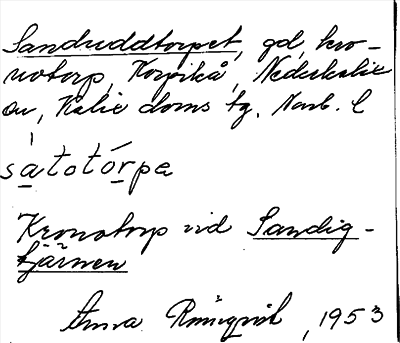 Sanduddtorpet, gd, kro-
notorp, Korpikå, Nederkalix
sn, Kalix doms tg. Norrb. l
satotórpa
Kronotorp vid Sandig-
tjärnen
Anna Rönnqvist, 1953